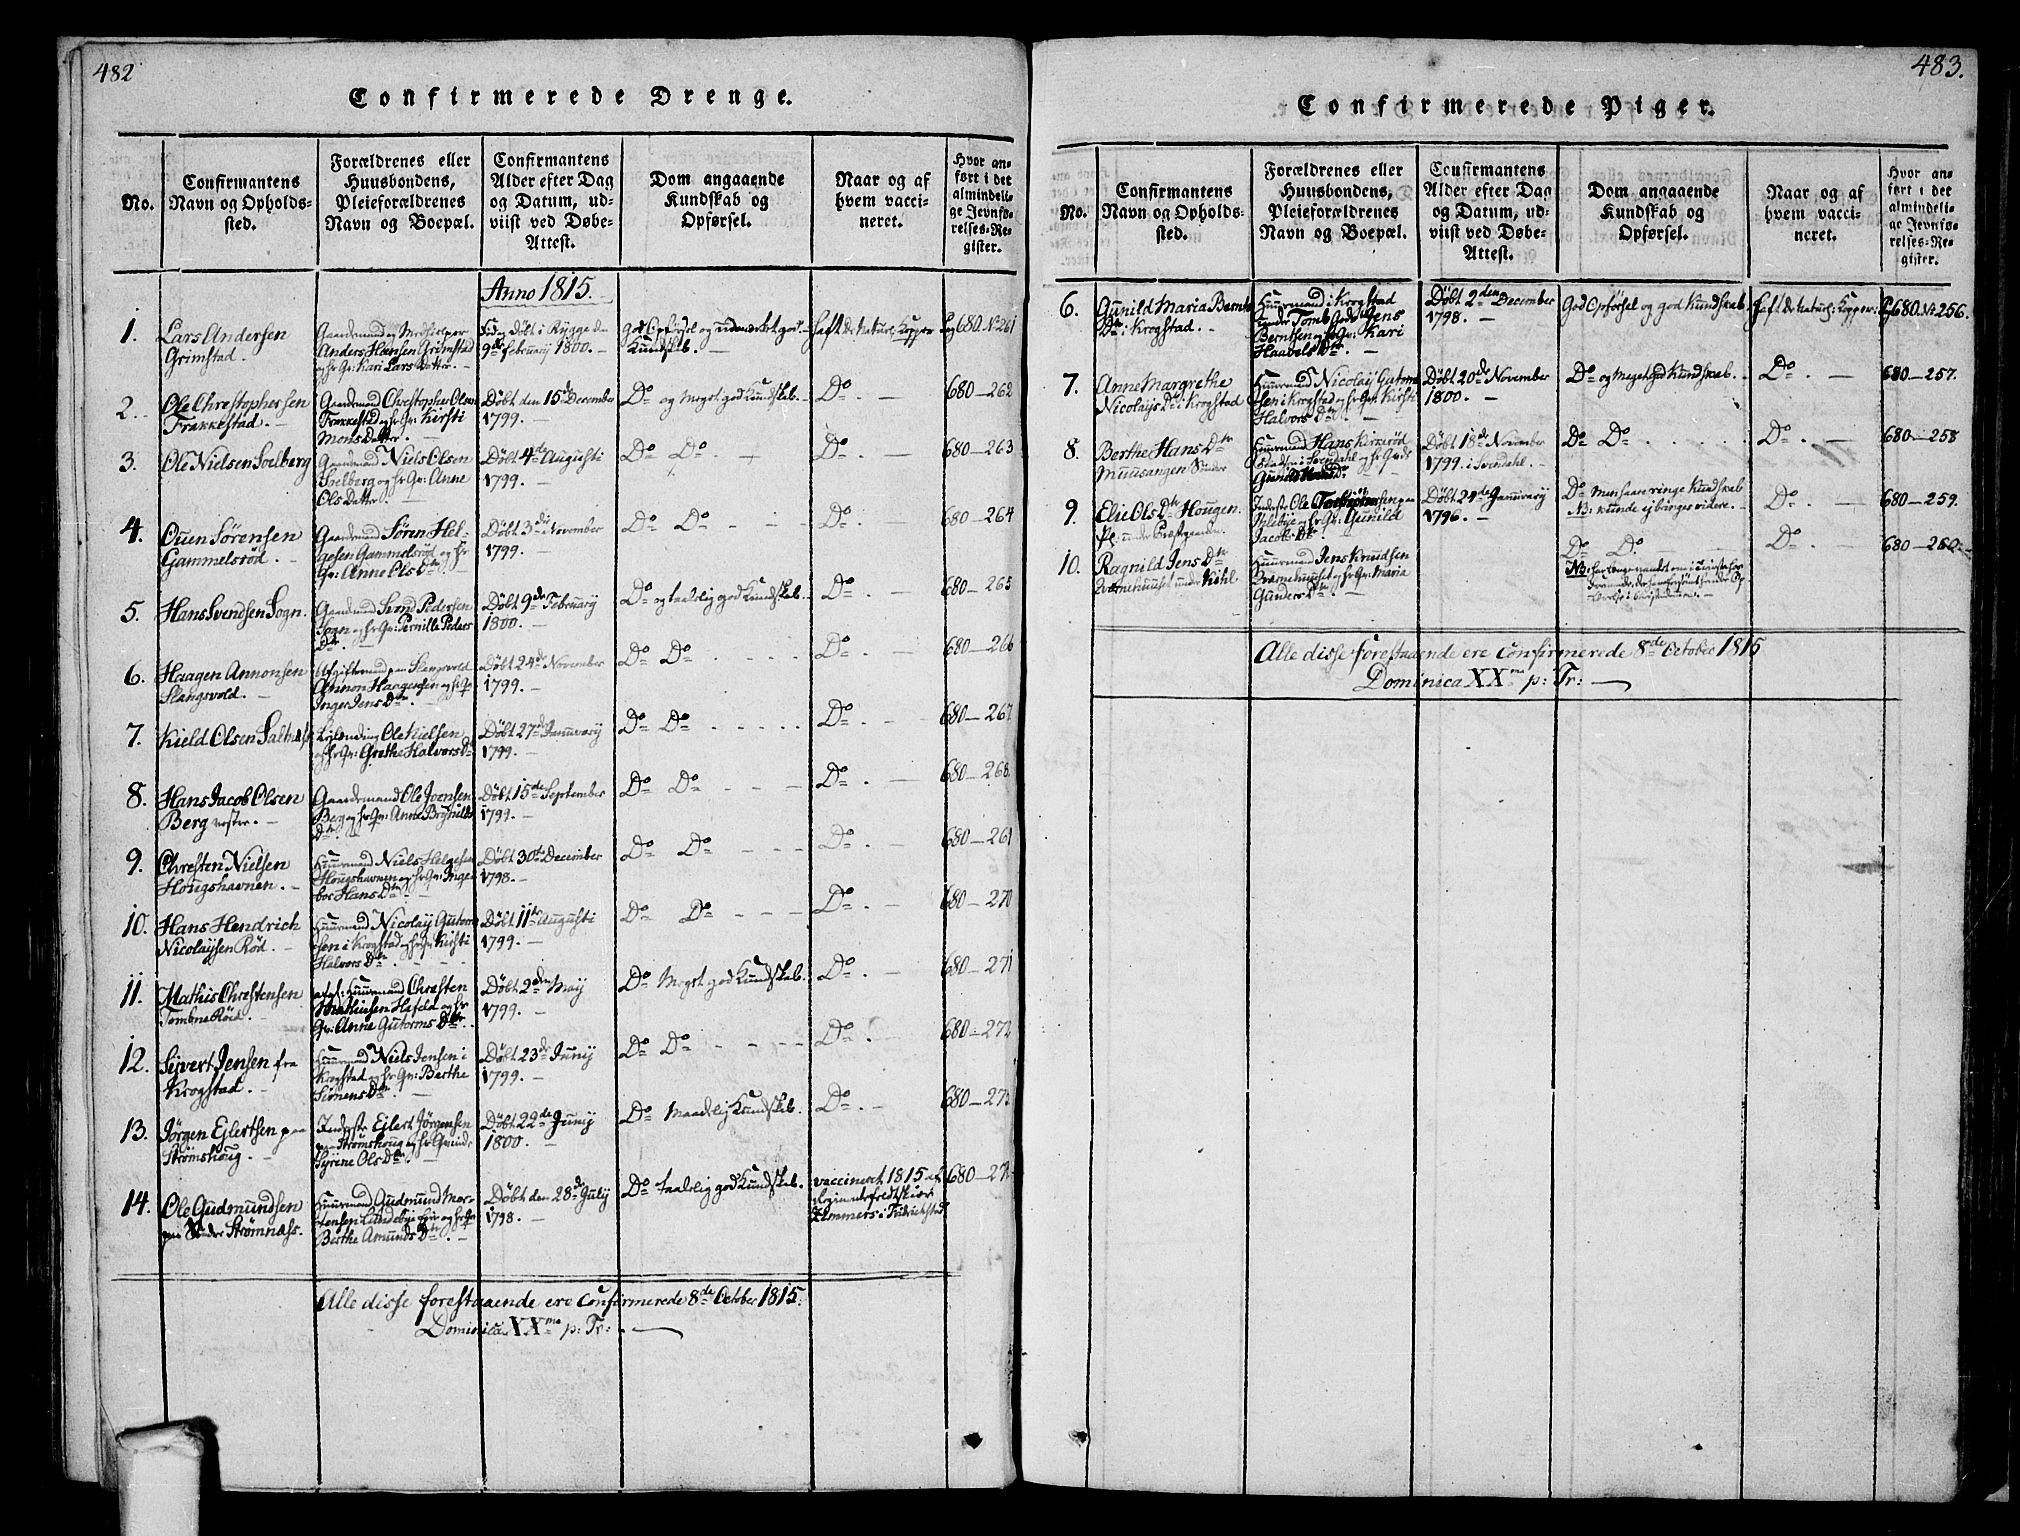 482
Confirmerede Drenge.
No.
Confirmantens
Navn og Opholds-
sted.
Forældrenes eller
Huusbondens,
Pleieforældrenes
Navn og Boepæl.
Confirmantens
Alder efter Dag
og Datum, ud-
viist ved Døbe-
Attest.
Dom angaaende
Kundskab og
Opførsel.
Naar og af
hvem vacci-
neret.
Hvor an-
ført i det
almindeli-
ge Jevnfø-
relses-Re-
gister.
Anno 1815.
1.
Lars Andersen
Grimstad.
Gaardmand og Medhielper
Anders Hansen Grimstad
og hr Qv: Kari Lars Datter.
Fød og døbt i Rygge d
9de februarij 1800.
God Opførsel og udmærket god
Kundskab.
haft de Naturl: Kopper
Pag 680 No 261
2.
Ole Chrestophersen
Frakkestad.
Gaardmand Chrestopher Olsen
Frakkestad og hr Qv: Kirsti
Mons Datter.
Døbt den 15de December
1799.
Do og Meget god Kundskab.
Do.
680-262
3.
Ole Nielsen Soelberg
Gaardmand Niels Olsen
Soelberg og hr Qv: Anne
Ols Datter
Døbt 4de Augusti
1799.
Do Do.
Do.
680-263
4.
Ouen Sørensen
Gammelsrød.
Gaardmand Søren Hel-
gesen Gammelsrød og hr
Qv: Anne Ols Dtr.
Døbt 3de November
1799.
Do Do
Do.
680-264
5.
Hans Svendsen Sogn.
Gaardmand Svend Pedersen
Sogn og hr Qv: Pernille Peders
Dtr.
Døbt 9de Februarij
1800.
Do og taalelig god Kundskab.
Do.
680-265
6.
Haagen Annonsen
Slangsvold.
Afgiftsmand paa Slangsvold
Annon Haagensen og hr Q
Inger Jens Dtr.
Døbt 24de November
1799.
Do Do
Do.
680-266
7.
Kield Olsen Saltnæs
Ole Kielsen
og hr Qv: Grethe Halvors D
Døbt 27de Januvarij
1799.
Do Do
Do.
680-267
8.
Hans Jacob Olsen
Berg vester.
Gaardmand Ole Joensen
Berg og hr Qv: Anne Brynilds
Dtr.
Døbt 15de September
1799.
Do Do
Do.
680-268.
9.
Chresten Nielsen
Hougshavnen.
Huusmand Niels Helgesen
Hougshavnen og hr Qv: Inge
bor Hans Dtr.
Døbt 30te December
1798.
Do Do
Do.
680-261
10.
Hans Hendrich
Nicolaysen Rød.
Huusmand Nicolay Gutorm
sen i Krogstad og hr Qv: Kirsti
Halvors Dtr.
Døbt 11te Augusti
1799.
Do Do
Do.
680-270
11.
Mathis Chrestensen
Tombne Røid.
afgl: Huusmand Chresten
Mathiesen Hafeld og hr
Qv: Anne Gutorms Dtr.
Døbt 2den May
1799.
Do Meget god Kundskab.
Do.
680-271
12.
Sivert Jensen fra
Krogstad.
Huusmand Niels Jensen i
Krogstad og hr Qv: Berthe
Simens Dtr.
Døbt 23de Junij
1799.
Do Do
Do.
680-272
13.
Jørgen Ejlertsen paa
Strømshoug.
Inderste Ejlert Jørgensen
paa Strømshoug og hr Qvinde
Syrene Ols Dtr.
Døbt 22de Junij
1800.
Do Maadelig Kundskab.
Do.
680-273
14.
Ole Gudmundsen
paa Søndre Strømnæss.
Huusmand Gudmund Mor-
tensen Lundebye Eje og hr Qv
Berthe Amunds Dtr.
Døbt den 28de Julij
1798.
Do taalelig god Kundskab.
vaccineret 1815 af
Regimentsfeldtskiær
Zimmers i Fridrichstad
680-274
Alle disse forestaaende ere Confirmerede 8de October 1815.
Dominica XXma p: Tr:
483.
Confirmerede Piger.
No.
Confirmantens
Navn og Opholds-
sted.
Forældrenes eller
Huusbondens,
Pleieforældrenes
Navn og Boepæl.
Confirmantens
Alder efter Dag
og Datum, ud-
viist ved Døbe-
Attest.
Dom angaaende
Kundskab og
Opførsel.
Naar og af
hvem vacci-
neret.
Hvor an-
ført i det
almindeli-
ge Jevnfø-
relses-Re-
gister.
6.
Gunild Maria Bernts
Dtr: Krogstad.
Huusmand i Krogstad
under Tomb Gods Jens
Berntsen og hr Qv: Kari
Haavels Dtr.
Døbt 2den December
1798.
God Opførsel og god Kundskab
haft de naturl: Kopper.
Pg 680 No 256.
7.
Anne Margrethe
Nicolays Dtr Krogstad
Huusmand Nicolay Gutorm
sen i Krogstad og hr Qv: Kirsti
Halvors Dtr.
Døbt 20de November
1800.
Do og Meget god Kundskab.
Do.
680-257.
8.
Berthe Hans Dtr
Muusangen Søndre
Huusmand Hans Kirkerød
i Svendahl og hr Qvde
Gunild
Døbt 18de November
1799. i Svendahl.
Do Do.
Do.
680-258
9.
Elie Ols Dtr Hougen.
Pl. under Præstgaarden.
Inderste Ole Torbjørnsen paa
og hr Qv: Gunild
Jacobs Dtr.
Døbt 24de Januvary
1796.
Do Men saare ringe Kundskab
NB: kunde ej bringes videre.
Do.
680-259.
10.
Ragnild Jens Dtr
Brænehuuset under Kihl
Huusmand Jens Knudsen
Brænehuuset og hr Qv: Maria
Gunders Dtr.
Do Do
Do.
680-260
Alle disse forestaaende ere confirmerede 8de October 1815
Dominica XXma p: Tr: